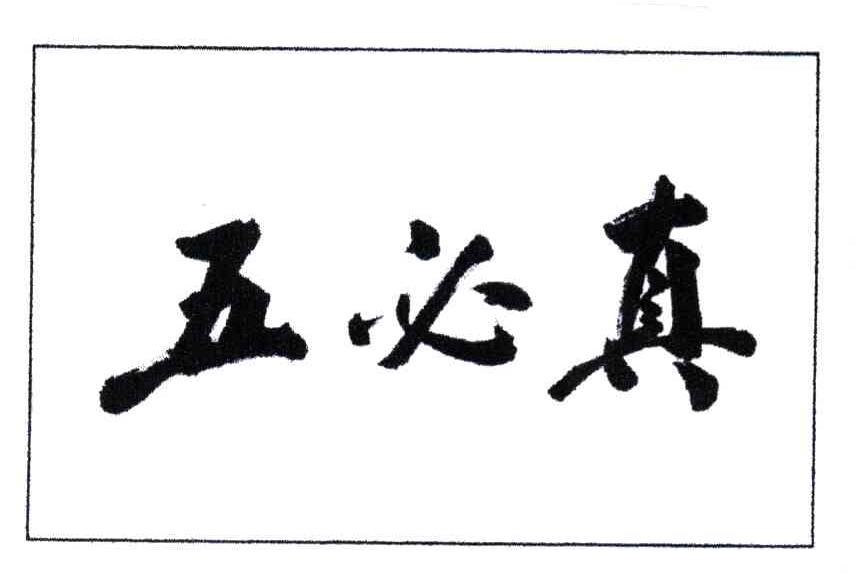 五必真